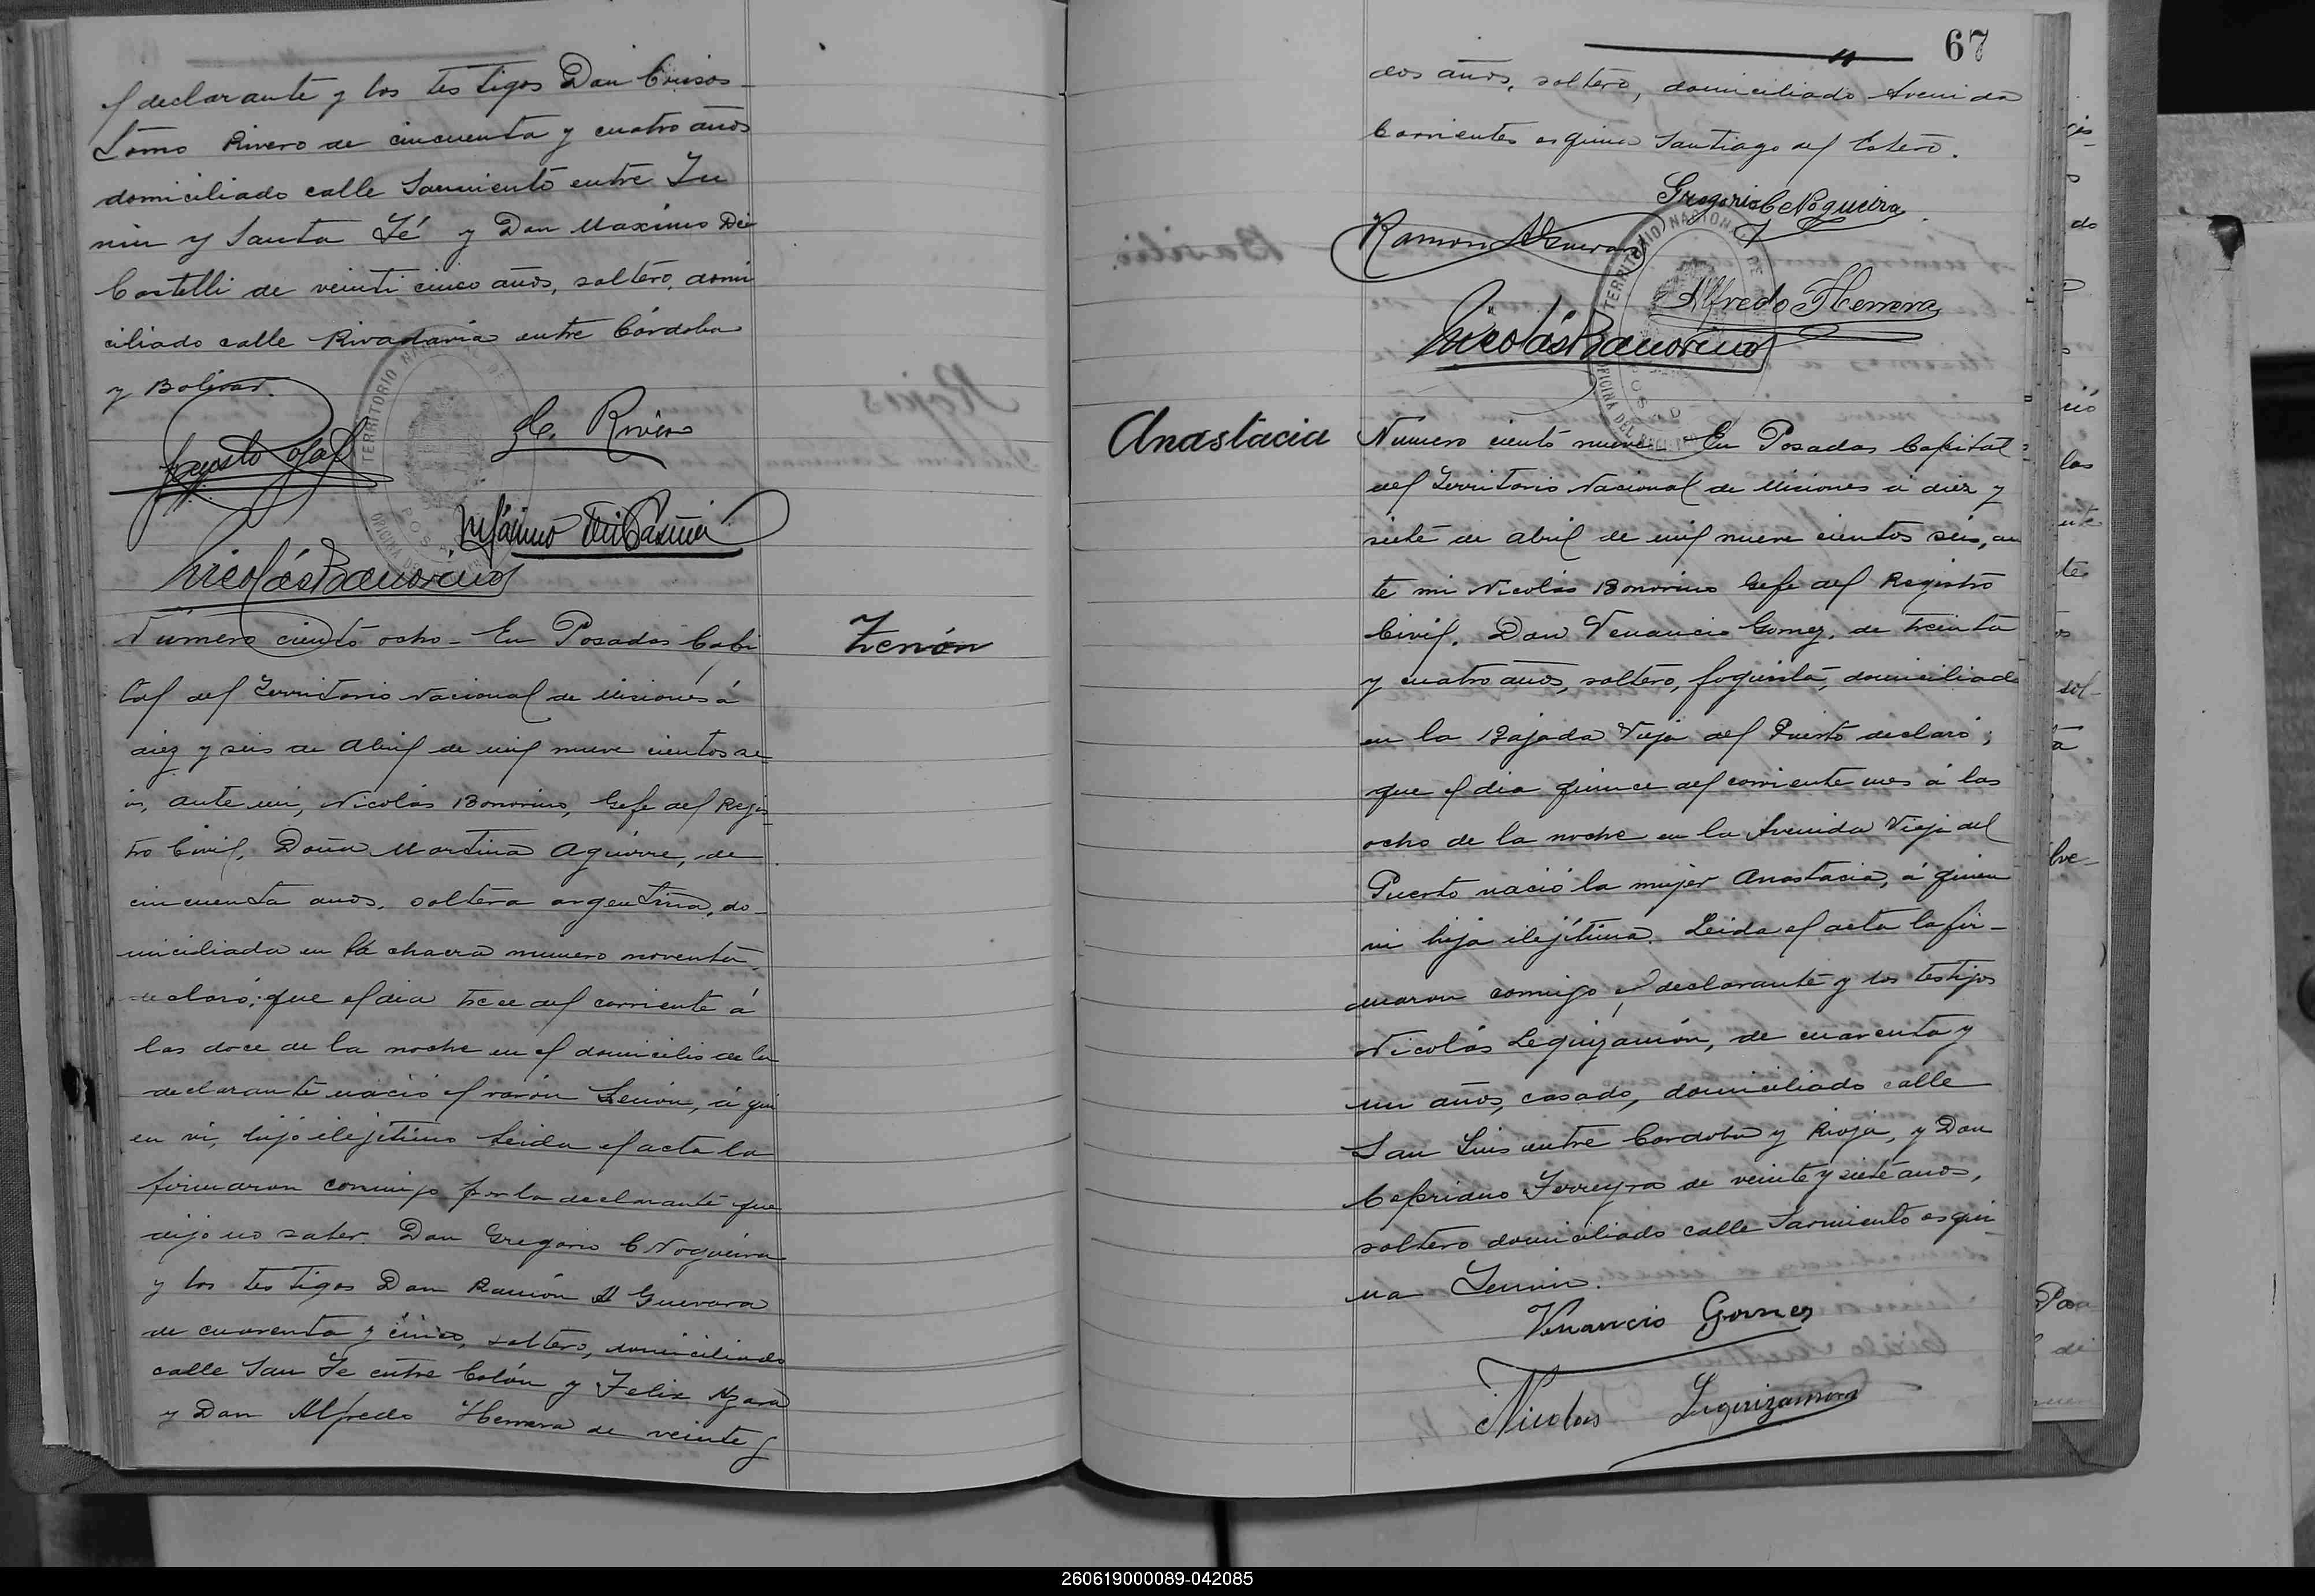 el declarante y los testigos Don Crisós-
tomo Rivero de cincuenta y cuatro años
domiciliado calle Sarmiento entre Ju
nin y Santa Fé y Don Maximo Dei
Castelli de veinti cinco años, soltero, domi
ciliado calle Rivadavia entre Córdoba
y Bolivar.
C. Rivero
Máximo
Nicolás Bonorino
Numero ciento ocho - En Posadas Capi
tal del Territorio Nacional de Misiones á
diez y seis de Abril de mil nueve cientos se
is, ante mi, Nicolás Bonorino, Gefe del Regis
tro Civil, Doña Martina Aguirre, de
cincuenta anos, soltera argentina, do-
miciliada en la chacra numero noventa,
declaró; que el dia trece del corriente á
las doce de la noche en el domicilio de la
declarante nació el varón Zenón, á qui
en vi, hijo ilejítimo Leida el acta la
firmaron conmigo por la declarante que
dijo no saber. Don Gregorio C Nogueira
y los testigos Don Ramón A Guevara
de cuarenta y cinco, soltero, domiciliado
calle San Fe entre Colón y Felix Azara
y Don Alfredo Herrera de veinte y
Zenón
67
dos años, soltero, domiciliado Avenida
Corrientes esquina Santiago del Estero.
Gregorio C Nogueira
Ramon A Guevara
Alfredo Herrera
Nicolás Bonorino
TERRITORIO NACIONAL DE
Anastacia
Número ciento nueve - En Posadas Capital
del Territorio Nacional de Misiones á diez y
siete de Abril de mil nueve cientos seis, an
te mi Nicolás Bonorino Gefe del Registro
Civil, Don Venancio Gomez, de treinta
y cuatro años, soltero, foguista, domiciliado
en la Bajada Vieja del Puerto declaró;
que el dia quince del corriente mes á las
ocho de la noche en la Avenida Vieja del
Puerto nació la mujer Anastacia, á quien
vi hija ilejítima. Leida el acta la fir-
maron conmigo el declarante y los testijos
Nicolás Leguizamón, de cuarenta y
un años, casado, domiciliado calle
San Luis entre Cordoba y Rioja, y Don
Cipriano Ferreyra de veinte y siete anos,
soltero domiciliado calle Sarmiento esqui
na Junin.
Venancio Gomez
Nicolas Leguizamon
260619000089-042085